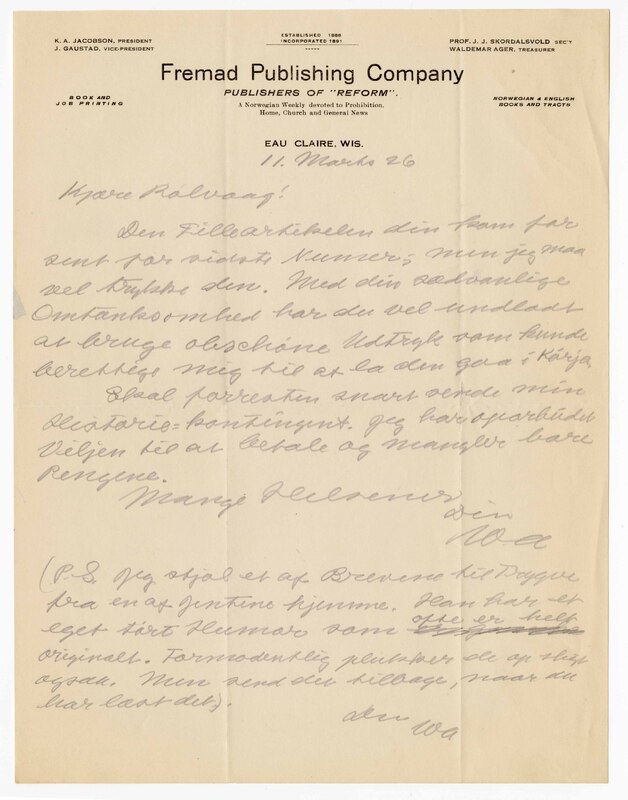 K. A. JACOBSON, PRESIDENT
J. GAUSTAD, VICE-PRESIDENT
ESTABLISHED 1886
INCORPORATED 1891
PROF. J. J. SKORDALSVOLD SEC'Y
WALDEMAR AGER, TREASURER
Fremad Publishing Company
PUBLISHERS OF "REFORM".
BOOK AND
JOB PRINTING
A Norwegian Weekly devoted to Prohibition,
Home, Church and General News
NORWEGIAN & ENGLISH
BOOKS AND TRACTS
EAU CLAIRE, WIS.
11. Marts 26
Kjære Rølvaag!
Den Filleartikelen din kom for
sent for sidste Numer; men jeg maa
vel trykke den. Med din sædvanlige
Omtanksomhed har du vel undladt
at bruge obschöne Udtryk som kunde
berettige mig til at la den gaa i Kørja
Skal forresten snart sende min
Historie=kontingent. Jeg har oparbeidet
Viljen til at betale og mangler bare
Pengene.
Mange Hilsener
Din
Wa
(P.S. Jeg stjal et af Brevene til Trygve
fra en af Jentene hjemme. Han har et
eget tørt Humør som ofte er helt
originalt. Formodentlig plukker de op sligt
ogsaa. Men send det tilbage, naar du
har læst det).
din Wa